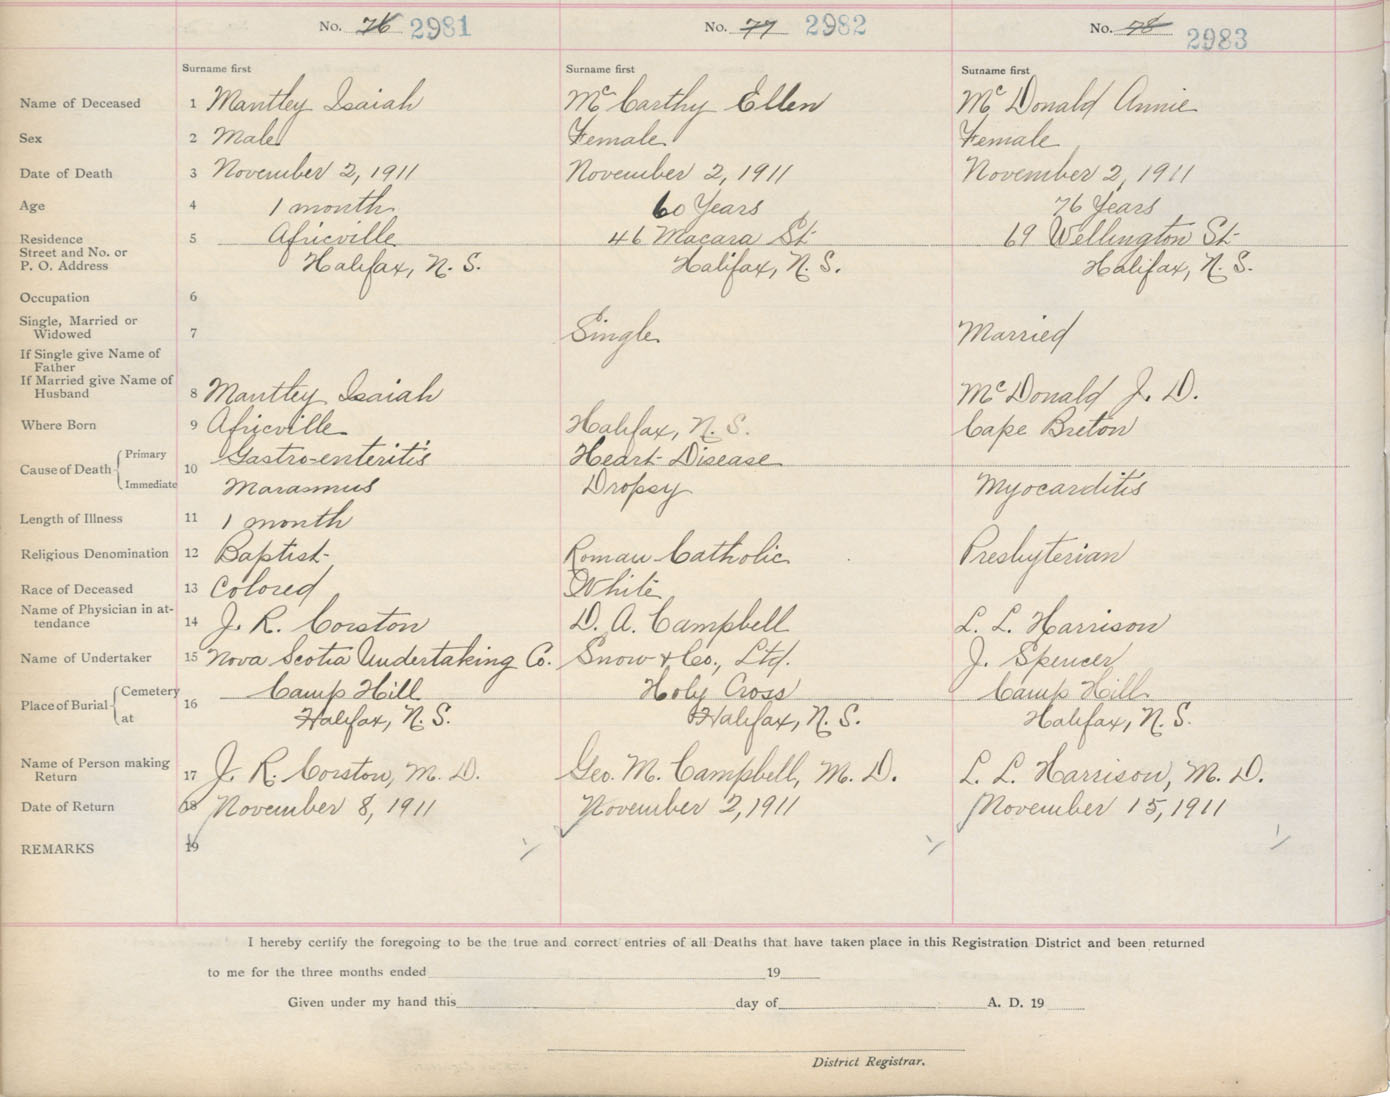 No. 76 2981 No. 77 2982 No. 78 2983
Surname first Surname first Surname first
Name of Deceased 1 Mantley Isaiah McCarthy Ellen McDonald Annie
Sex 2 Male Female Female
Date of Death 3 November 2, 1911 November 2, 1911 November 2, 1911
Age 4 1 month 60 Years 76 Years
Residence 5 Africville 46 Macara St. 69 Wellington St.
Street and No. or
P. O. Address Halifax, N. S. Halifax, N. S. Halifax, N. S.
Occupation 6
Single, Married or
Widowed 7 Single Married
If Single give Name of
Father
If Married give Name of
Husband 8 Mantley Isaiah McDonald J. D.
Where Born 9 Africville Halifax, N. S. Cape Breton
Cause of Death Primary 10 Gastro-enteritis Heart Disease
Immediate Marasmus Dropsy Myocarditis
Length of Illness 11 1 month
Religious Denomination 12 Baptist Roman Catholic Presbyterian
Race of Deceased 13 Colored White
Name of Physician in at-
tendance 14 J. R. Corston D. A. Campbell L. L. Harrison
Name of Undertaker 15 Nova Scotia Undertaking Co. Snow & Co., Ltd. J. Spencer
Place of Burial Cemetery 16 Camp Hill Holy Cross Camp Hill
at Halifax, N. S. Halifax, N. S. Halifax, N. S.
Name of Person making
Return 17 J. R. Corston, M. D. Geo. M. Campbell, M. D. L. L. Harrison, M. D.
Date of Return 18 November 8, 1911 November 2, 1911 November 15, 1911
REMARKS 19
I hereby certify the foregoing to be the true and correct entries of all Deaths that have taken place in this Registration District and been returned
to me for the three months ended 19
Given under my hand this day of A. D. 19
District Registrar.